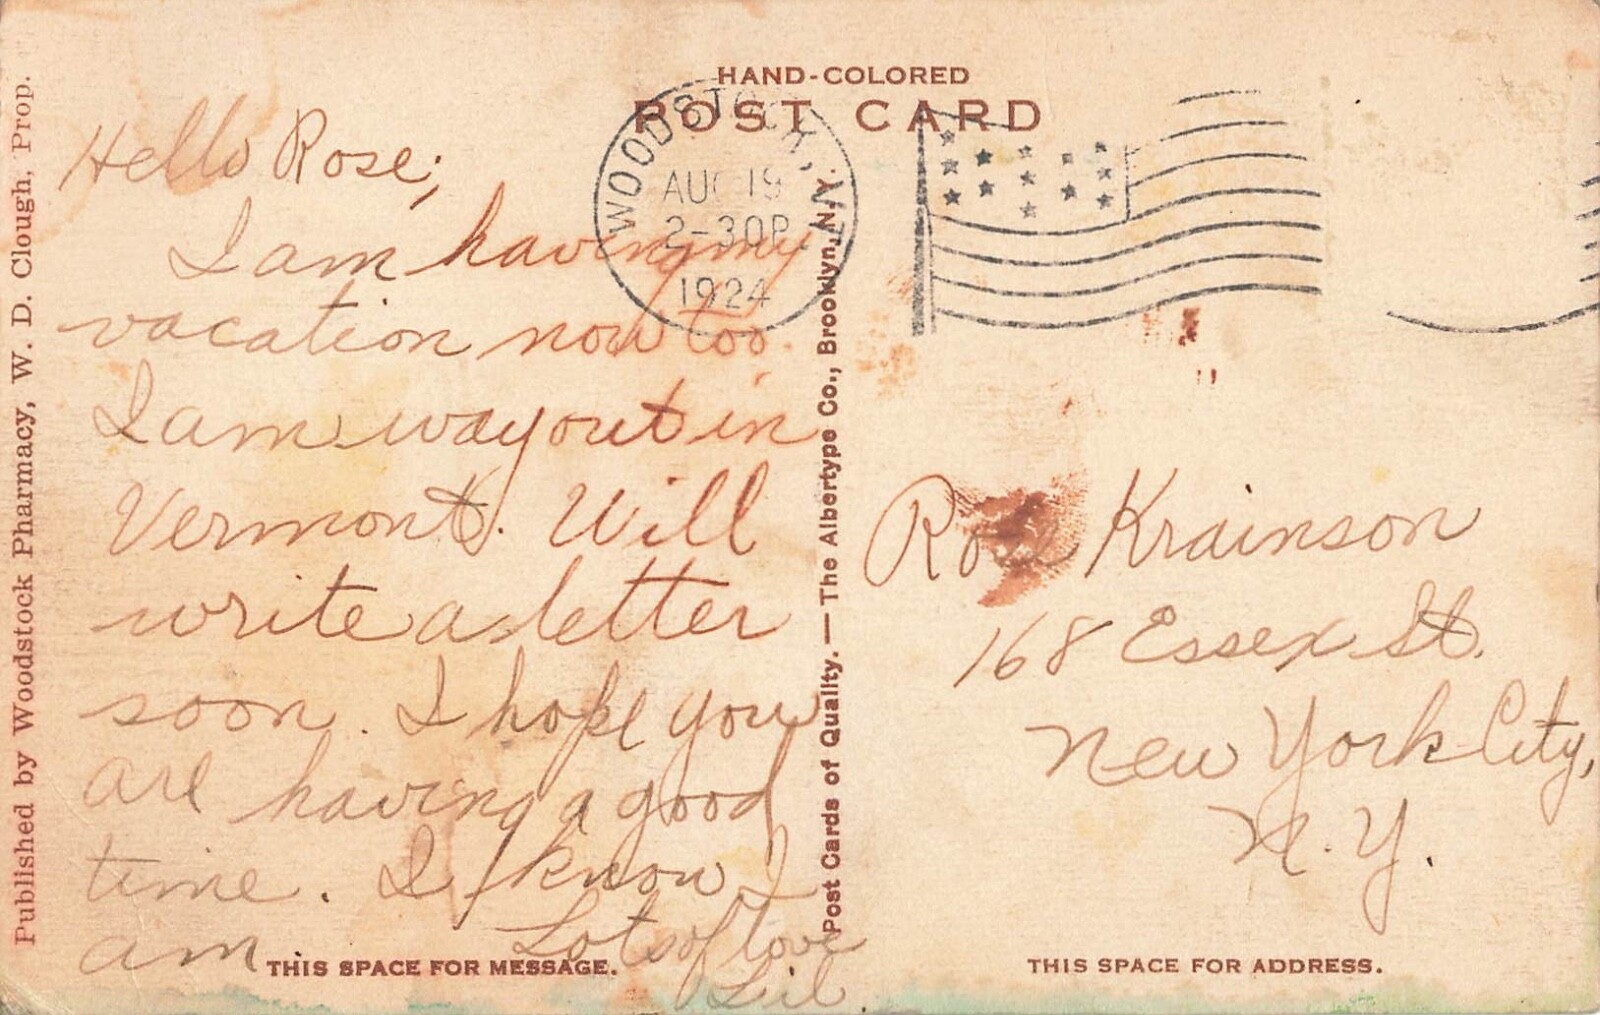 HAND-COLORED
POST CARD
WOODSTOCK, VT.
AUG 19
2-30P
1924
Hello Rose;
I am having my
vacation now too.
I am way out in
Vermont. Will
write a letter
soon. I hope you
are having a good
time. I know I
am
Lots of love
Lil.
THIS SPACE FOR MESSAGE.
Published by Woodstock Pharmacy, W. D. Clough, Prop.
Post Cards of Quality. — The Albertype Co., Brooklyn, N. Y.
Rose Krainson
168 Essex St.
New York City,
N. Y.
THIS SPACE FOR ADDRESS.